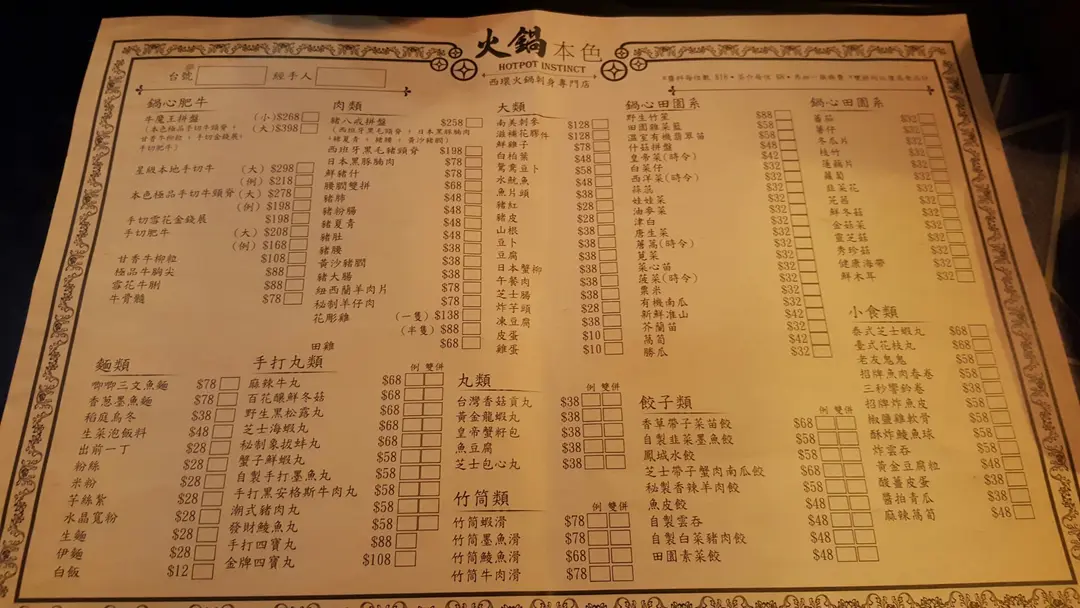 火鍋本色
HOTPOT INSTINCT
西環火鍋刺身專門店
台號 經手人
鍋心肥牛
牛魔王拼盤 (小)$268
(大)$398
星級本地手切牛 (大) $298
(例) $218
本色極品手切牛頸脊 (大) $278
(例) $198
手切雪花金錢展 $198
手切肥牛 (大) $208
(例) $168
甘香牛柳粒 $108
極品牛胸尖 $88
雪花牛脷 $88
牛骨髓 $78
肉類
豬八戒拼盤 $258
西班牙黑毛豬頸脊 $198
日本黑豚腩肉 $78
鮮豬什 $78
腰膶雙拼 $68
豬肺 $48
豬粉腸 $48
豬夏青 $48
豬肚 $48
豬腰 $38
黃沙豬膶 $38
豬大腸 $38
紐西蘭羊肉片 $78
秘制羊仔肉 $78
花彫雞 (一隻) $138
(半隻) $88
田雞 $68
大類
南美刺參 $128
滋補花膠件 $128
鮮雞子 $78
白柏葉 $48
鴛鴦豆卜 $58
水魷魚 $48
魚片頭 $38
豬紅 $28
豬皮 $38
山根 $38
豆卜 $38
豆腐 $38
日本蟹柳 $38
午餐肉 $38
芝士腸 $38
炸芋頭 $28
凍豆腐 $38
皮蛋 $10
雞蛋 $10
鍋心田園系
野生竹笙 $88
田園雜菜籃 $58
溫室有機翡翠苗 $58
什菇拼盤 $48
皇帝菜(時令) $42
白菜仔 $32
西洋菜(時令) $32
蒓菡 $32
娃娃菜 $32
油麥菜 $32
津白 $32
唐生菜 $32
茼蒿(時令) $32
莧菜 $32
菜心苗 $32
菠菜(時令) $32
粟米 $32
有機南瓜 $32
新鮮淮山 $42
芥蘭苗 $32
萵筍 $42
勝瓜 $32
鍋心田園系
蕃茄 $32
薯仔 $32
冬瓜片 $32
枝竹 $32
蓮藕片 $32
蘿蔔 $32
韮菜花 $32
芝茗 $32
鮮冬菇 $32
金菇菜 $32
靈芝菇 $32
秀珍菇 $32
健康海帶 $32
鮮木耳 $32
小食類
泰式芝士蝦丸 $68
臺式花枝丸 $68
老友鬼鬼 $58
招牌魚肉春卷 $58
三秒響鈴卷 $38
招牌炸魚皮 $58
椒鹽雞軟骨 $58
酥炸鯪魚球 $58
炸雲吞 $58
黃金豆腐粒 $48
酸薑皮蛋 $38
醬拍青瓜 $38
麻辣萵筍 $48
麵類
唧唧三文魚麵 $78
香蔥墨魚麵 $78
稻庭烏冬 $38
生菜泡飯料 $48
出前一丁 $28
粉絲 $28
米粉 $28
芋絲紮 $28
水晶寬粉 $28
生麵 $28
伊麵 $28
白飯 $12
手打丸類
例 雙併
麻辣牛丸 $68
百花釀鮮冬菇 $68
野生黑松露丸 $68
芝士海蝦丸 $68
秘制象拔蚌丸 $68
蟹子鮮蝦丸 $58
自製手打墨魚丸 $58
手打黑安格斯牛肉丸 $58
潮式豬肉丸 $58
發財鯪魚丸 $58
手打四寶丸 $88
金牌四寶丸 $108
丸類
例 雙併
台灣香菇貢丸 $38
黃金龍蝦丸 $38
皇帝蟹籽包 $38
魚豆腐 $38
芝士包心丸 $38
竹筒類
例 雙併
竹筒蝦滑 $78
竹筒墨魚滑 $78
竹筒鯪魚滑 $68
竹筒牛肉滑 $78
餃子類
例 雙併
香草帶子菜苗餃 $68
自製韮菜墨魚餃 $58
鳳城水餃 $58
芝士帶子蟹肉南瓜餃 $68
秘製香辣羊肉餃 $58
魚皮餃 $48
自製雲吞 $48
自製白菜豬肉餃 $48
田園素菜餃 $48